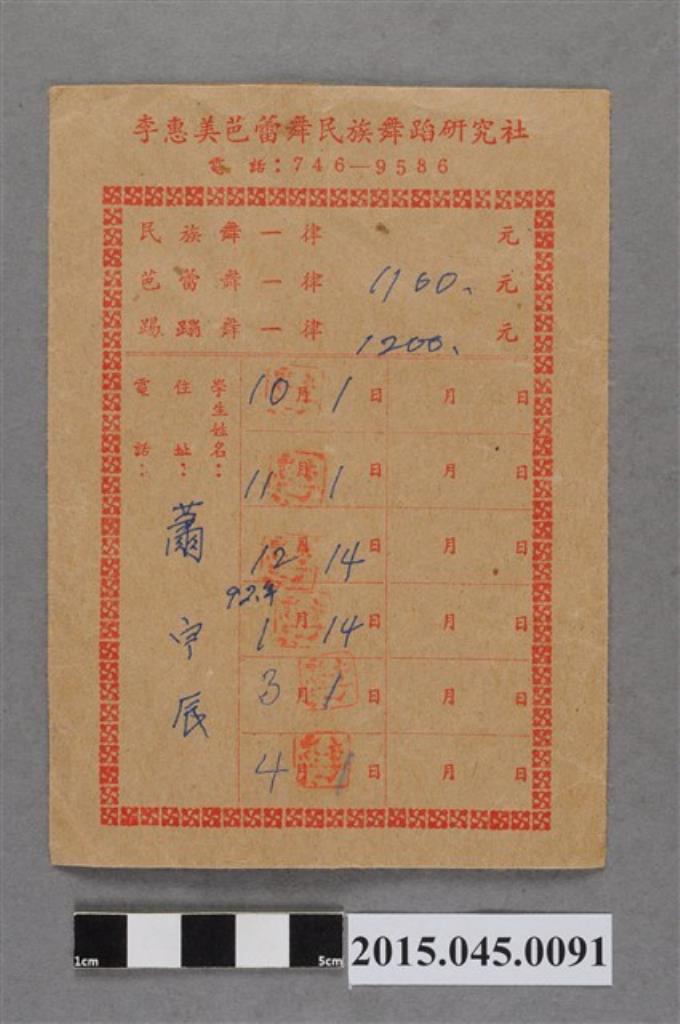 李惠美芭蕾舞民族舞蹈研究社
電話：746—9586
民族舞一律 元
芭蕾舞一律 1160、元
踢蹋舞一律 1200、元
學生姓名：
住址：
電話：
蕭守辰
10月1日 月 日
11月1日 月 日
12月14日 月 日
92年
1月14日 月 日
3月1日 月 日
4月1日 月 日
1cm 5cm
2015.045.0091